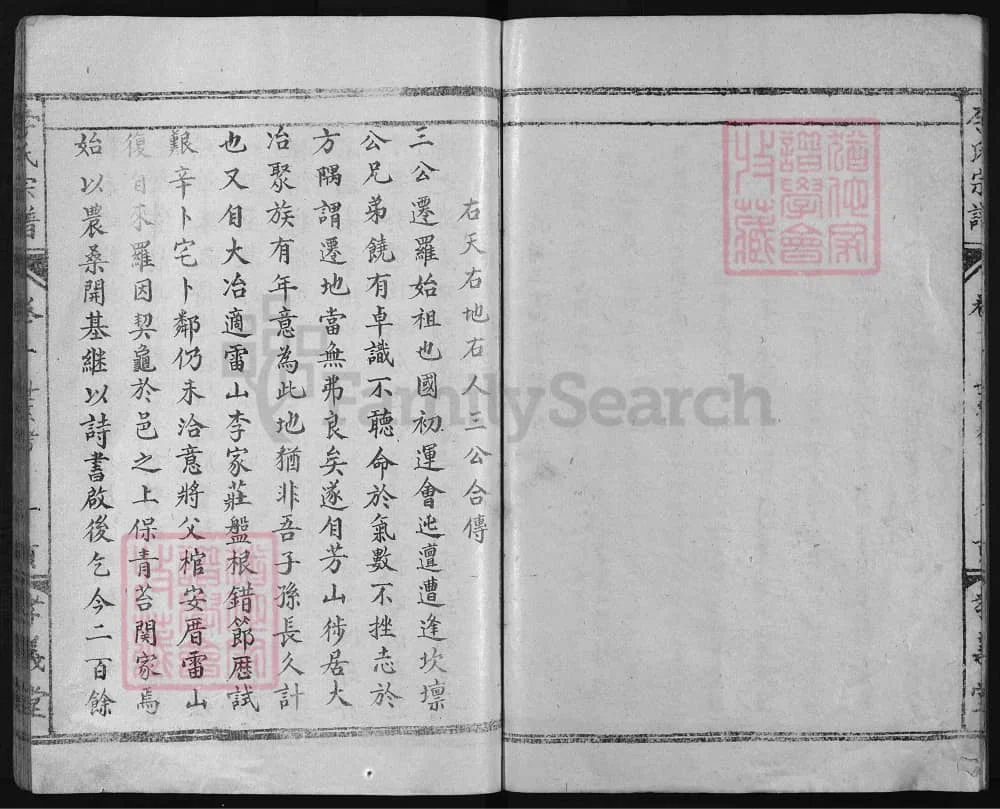 右天右地右人三公合傳
三公遷羅始祖也國初運會迍邅遭逢坎壈
公兄弟饒有卓識不聽命於氣數不挫志於
方隅謂遷地當無弗良矣遂自芳山徙居大
冶聚族有年意為此地猶非吾子孫長久計
也又自大冶適雷山李家莊盤根錯節歷試
艱辛卜宅卜鄰仍未洽意將父棺安厝雷山
復自來羅因契龜於邑之上保青苔関家焉
始以農桑開基継以詩書啟後乞今二百餘
李氏宗譜
孝義堂
李氏宗譜
孝義堂
FamilySearch